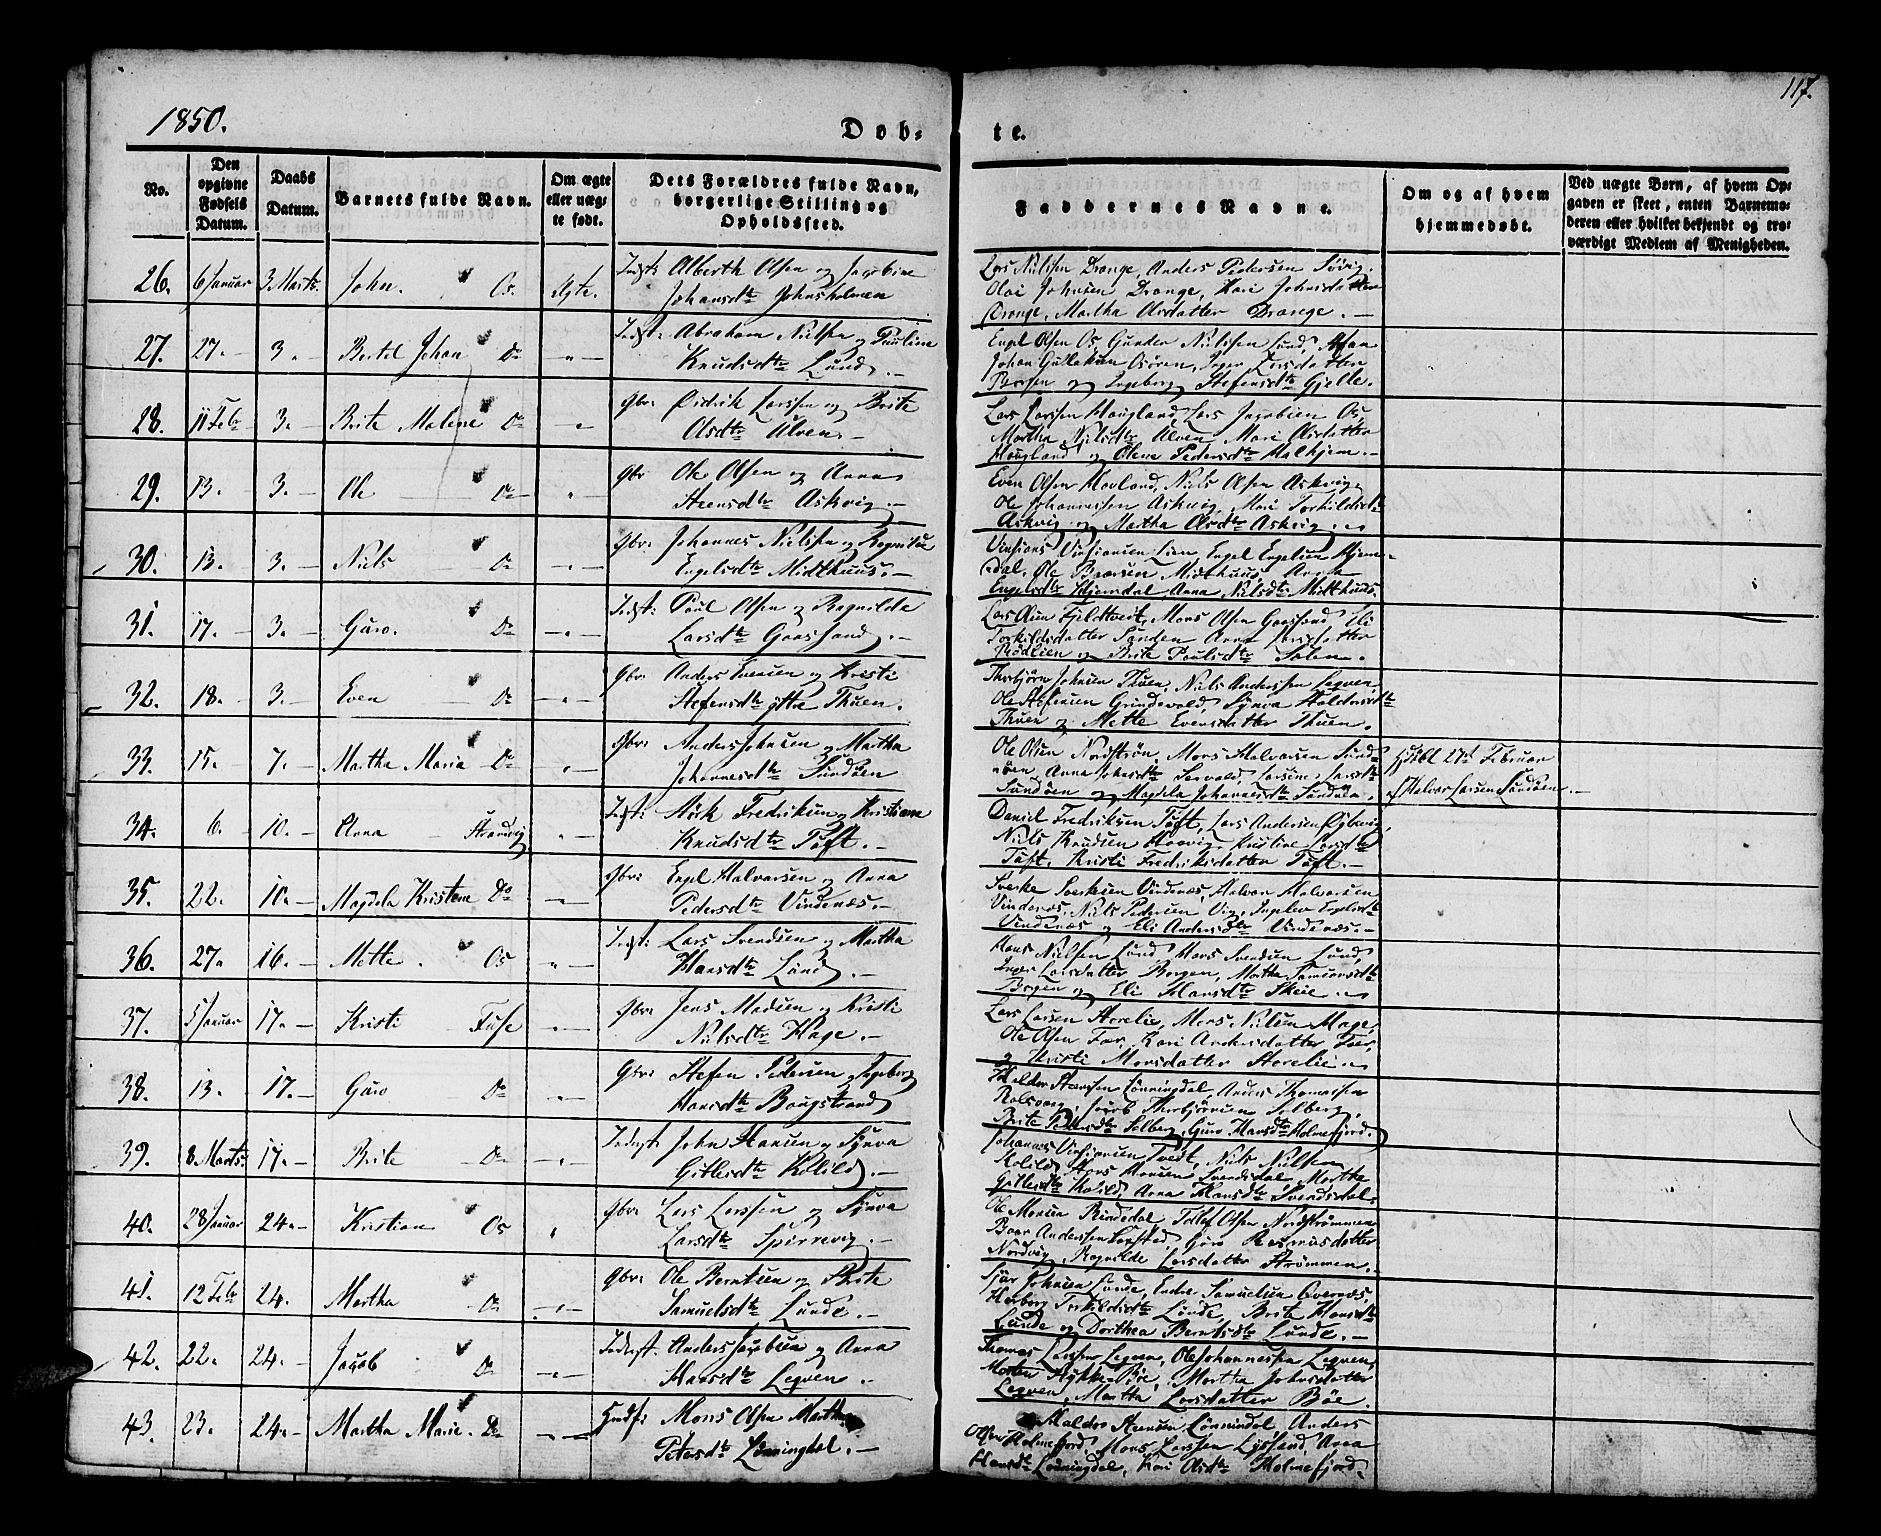 1850.
117.
Døb-
te.
No.
Den opgivne Fødsels Datum.
Daabs Datum.
Barnets fulde Navn.
Om ægte eller uægte født.
Dets Forældres fulde Navn,
borgerlige Stilling og
Opholdssted.
Faddernes Navne.
Om og af hvem
hjemmedøbt.
Ved uægte Børn, af hvem Op-
gaven er skeet, enten Barnemo-
deren eller hvilket bekjendt og tro-
værdigt Medlem af Menigheden.
26. 6 Januar 3 Marts. John. Os. Ægte. Indst: Alberth Olsen og Jacobine
Johansdtr Johnsholmen
Lars Nilssen Drange, Anders Pedersen Søvig,
Oloi Johnsen Drange, Kari Johnsdatter
Drange, Martha Olsdatter Drange. —
27. 27. 3. Bertel Johan Do Indst: Abraham Nilsen og Pauline
Knudsdtr Lund. —
Engel Olsen Os, Gunder Nielssen Lund
Johan Gullaksen Osøren, Inger Larsdatter
Borgen og Ingeborg Stefensdtr Gjelle.
28. 11 Feb 3. Brite Malene Do Gbr: Didrik Larssen og Brite
Olsdtr Ulven. —
Lars Larssen Hougland, Lars Jacobsen Os,
Martha Nilsdtr Ulven Mari Olsdatter
Hougland og Olene Pedersdtr Halhjem. —
29. 13. 3. Ole Do Gbr Ole Olsen og Anna
Steensdtr Askvig. —
Even Olsen Hovland, Niels Olsen Askvig,
Ole Johannessen Askvig, Mari Torkildsdtr
Askvig og Martha Olsdtr Askvig.
30. 13. 3. Niels Do Gbr: Johannes Nielsen og Ragnilde
Engelsdtr Midthuus. —
Vinsians Vinsiansen Lien, Engel Engelsen Hjem-
dal, Ole Baarsen Midthuus, Anna
Engelsdtr Hjemdal, Anna Nilsdtr Midthuus.
31. 17. 3. Guro. Do Indst: Poul Olsen og Ragnilda
Larsdtr Gaassand. —
Lars Olsen Fjeldtvedt, Mons Olsen Gaassand, Eli
Torkildsdatter Sanden Anna Larsdatter
Rødlien og Brite Poulsdtr
32. 18. 3. Even Do Gbr: Anders Evensen og Kristi
Stefensdtr ytre Thuen.
Thorbjørn Johnsen Thuen, Niels Anderssen Legven,
Ole Stefensen Grindevold, Synva Haldorsdtr
Thuen og Mette Evensdatter Thuen.
33. 15. 7. Martha Maria Do Gbr: Anders Johnsen og Martha
Johannesdtr Sundøen
Ole Olsen Nordstrøn, Mons Halvorsen Sund-
øen, Anna Johnsdtr Larsdtr
Sundøen og Magdela Johannesdtr Sundøen.
Hjdøbt 27d Februar
af Halvor Larsen Sundøen. —
34. 6. 10. Anna Strandvig Indst: Fredriksen og Kristiane
Knudsdtr Tøft. —
Daniel Fredriksen Tøft, Lars Andersen
Niels Knudsen Larsdtr
Tøft, Kristi Fredriksdatter Tøft. —
35. 22. 10. Magdela Kristene Do Gbr: Engel Halvorsen og Anna
Pedersdtr Vindenæs. —
Sverke Sverkesen Vindenæs, Halvor Halvorsen
Vindenæs, Niels Pedersen Vig, Ingelev Engelsdtr
Vindenæs og Eli Andersdtr Vindenæs. —
36. 27. 16. Mette. Os Indst: Lars Svendsen og Martha
Hansdtr Lund. —
Hans Nielsen Lund Hans Svendsen Lund,
Inger Larsdatter Borgen, Martha Samsonsdtr
Borgen og Eli Hansdtr Skeie.
37. 5 Januar 17. Kristi Fuse Gbr: Jens Madsen og Kristi
Nielsdtr Hage. —
Lars Larsen Hage,
Ole Olsen Kari Andersdatter
og Kristi Monsdatter
38. 13. 17. Guro Do Gbr: Stefen Pedersen og Ingeborg
Hansdtr Bougstrand
Haldor Steensen Lønningdal, Anders Thomassen
Rolsvaag, Jacob Thorbjørnsen Solberg,
Brite Pedersdtr Solberg, Guro Hansdtr Holmefjord.
39. 8 Marts 17. Brite Do Indst: John Hansen og Synva
Gitlesdtr Kolild. —
Johannes Vinsiansen Tvedt, Niels Nielsen
Kolild, Hans Hansen Svendsdal, Marthe
Gitlesdtr Kolild, Anna Hansdtr Svendsdal.
40. 28 Januar 24. Kristian Os Gbr: Lars Larssen og Synva
Larsdtr Spirrevig. —
Ole Monsen Rindedal Tollef Olsen Nordstrømmen
Baar Anderssen Guro Rasmusdatter
Nordvig, Ragnilde Larsdatter Strømmen.
41. 12 Feb 24. Martha Do Gbr: Ole Berntsen og Brite
Samuelsdtr Lunde. —
Sjur Johnsen Lunde, Endre Samuelsen Overaas,
Herborg Torkildsdtr Lunde, Brita Hansdtr
Lunde og Dorthea Berntsdtr Lunde. —
42. 22. 24. Jacob Do Indst: Anders Jacobsen og Anna
Hansdtr Legven.
Thomas Larssen Legven, Ole Johannessen Legven,
Morten Bøe, Martha Johnsdatter
Legven, Martha Larsdatter Bøe.
43. 23. 24. Martha Marie. Do Mons Olsen Martha
Petersdtr Lønningdal. —
Haldor Steensen Lønningdal Anders
Olsen Holmefjord, Mons Larssen Lysand, Anna
Hansdtr Lønningdal, Kari Olsdtr Holmefjord.